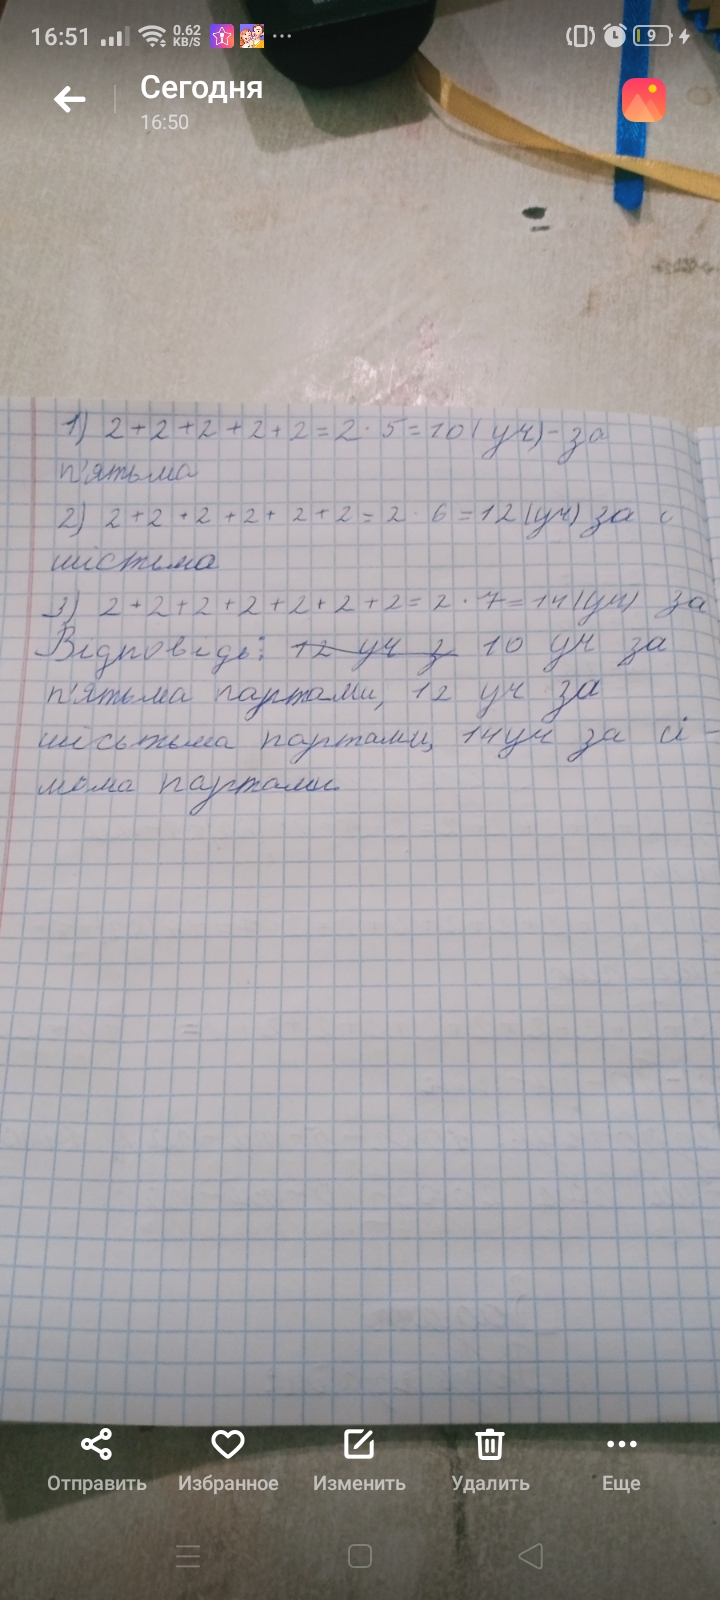 16:51 0.62 KB/S 9
Сегодня
16:50
1) 2+2+2+2+2=2·5=10(уч)-за
п'ятьма
2) 2+2+2+2+2+2=2·6=12(уч) за
шістьма
3) 2+2+2+2+2+2+2=2·7=14(уч) за
Відповідь: 12 уч з 10 уч за
п'ятьма партами, 12 уч за
шісьтьма партами, 14уч за сі-
мома партами
Отправить Избранное Изменить Удалить Еще